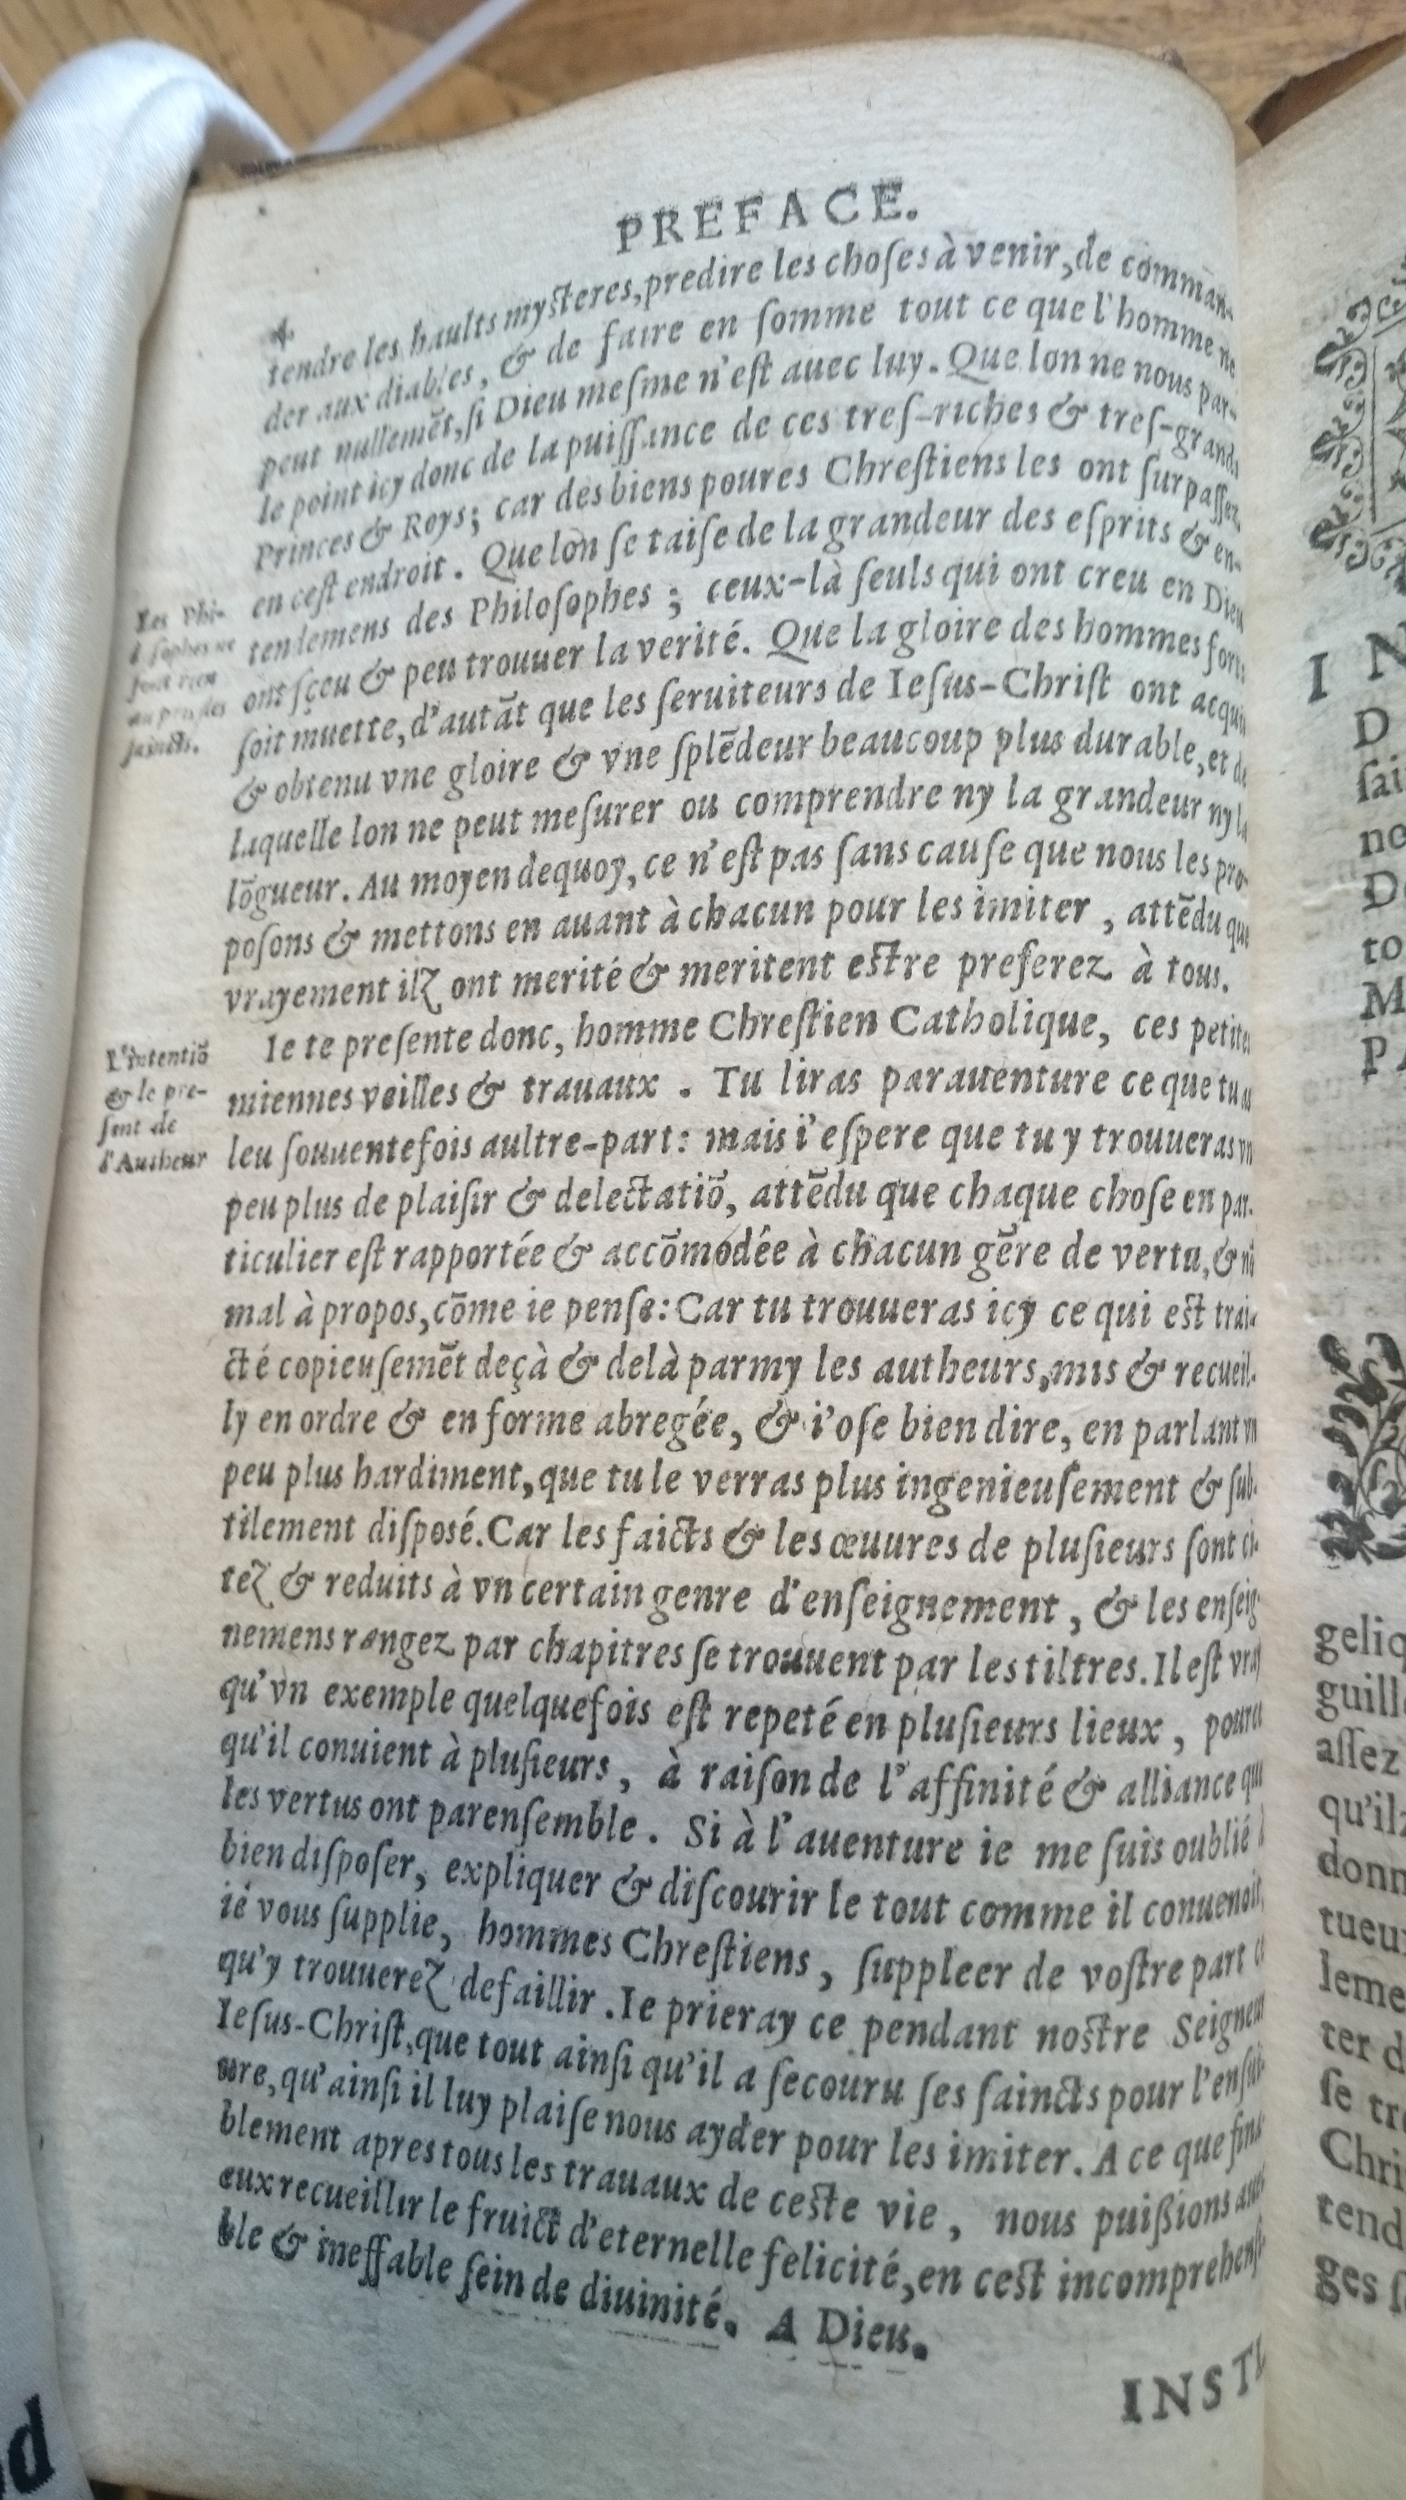 PREFACE.
tendre les haults mysteres, predire les choſes à venir, de comman-
der aux diables, & de faire en ſomme tout ce que l'homme ne
peut nullemēt, ſi Dieu meſme n'eſt auec luy. Que lon ne nous par-
le point icy donc de la puiſſance de ces treſ-riches & treſ-grands
Princes & Roys; car des biens poures Chreſtiens les ont ſurpaſſez
en ceſt endroit. Que lon ſe taiſe de la grandeur des eſprits & en-
tendemens des Philoſophes; ceux-là ſeuls qui ont creu en Dieu
ont ſçeu & peu trouuer la verité. Que la gloire des hommes forts
ſoit muette, d'autāt que les ſeruiteurs de Ieſus-Chriſt ont acquis
& obtenu vne gloire & vne ſplēdeur beaucoup plus durable, et de
laquelle lon ne peut meſurer ou comprendre ny la grandeur ny la
lōgueur. Au moyen dequoy, ce n'eſt pas ſans cauſe que nous les pro-
poſons & mettons en auant à chacun pour les imiter, attēdu que
vrayement ilz ont merité & meritent estre preferez à tous.
Les Phi-
loſophes ne
ſont rien
au pris des
ſaincts.
Ie te preſente donc, homme Chreſtien Catholique, ces petites
miennes veilles & trauaux. Tu liras parauenture ce que tu as
leu ſouuentefois aultre-part: mais i'eſpere que tu y trouueras vn
peu plus de plaiſir & delectatiō, attēdu que chaque choſe en par-
ticulier eſt rapportée & accōmodée à chacun gēre de vertu, & nō
mal à propos, cōme ie penſe: Car tu trouueras icy ce qui est trai-
cté copieuſemēt deçà & delà parmy les autheurs, mis & recueil-
ly en ordre & en forme abregée, & i'oſe bien dire, en parlant vn
peu plus hardiment, que tu le verras plus ingenieuſement & ſub-
tilement diſposé. Car les faicts & les œuures de pluſieurs ſont ci-
tez & reduits à vn certain genre d'enſeignement, & les enſeig-
nemens rangez par chapitres ſe trouuent par les tiltres. Il eſt vray
qu'vn exemple quelquefois eſt repeté en pluſieurs lieux, pource
qu'il conuient à pluſieurs, à raiſon de l'affinité & alliance que
les vertus ont parenſemble. Si à l'auenture ie me ſuis oublié à
bien diſpoſer, expliquer & diſcourir le tout comme il conuenoit,
ie vous ſupplie, hommes Chreſtiens, ſuppleer de voſtre part ce
qu'y trouuerez defaillir. Ie prieray ce pendant nostre Seigneur
Ieſus-Chriſt, que tout ainſi qu'il a ſecouru ſes ſaincts pour l'enſui-
ure, qu'ainſi il luy plaiſe nous ayder pour les imiter. A ce que fina-
blement apres tous les trauaux de ceste vie, nous puißions auec
eux recueillir le fruict d'eternelle felicité, en cest incomprehenſi-
ble & ineffable ſein de diuinité. A Dieu.
L'intentiō
& le pre-
ſent de
l'Autheur
INSTI
I N
D
ſai
ne
D
to
M
PA
geliq
guill
aſſez
qu'ilz
donn
tueu
leme
ter d
ſe tr
Chri
tend
ges ſ